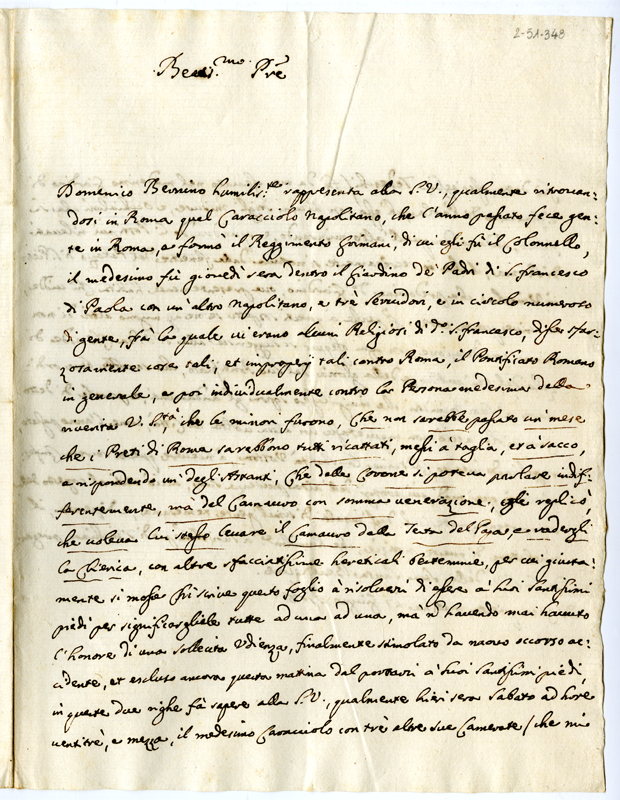 2-51-343
Beat.mo Prē
Domenico Bernino humilis.te rappresenta alla S. V., qualmente ritrovan:
dosi in Roma quel Caracciolo Napolitano, che l'anno passato fece gen:
te in Roma, e formò il Reggimento Grimani, di cui egli fù il Colonnello,
il medesimo fù giovedì sera dentro il Giardino de' Padri di S. Francesco
di Paola con un' altro Napolitano, e trè Servidori, e in circolo numeroso
di gente, frà la quale vi erano alcuni Religiosi di d.o S. Francesco, disse sfar:
zosamente cose tali, et improperij tali contro Roma, il Pontificato Romano
in generale, e poi individualmente contro la Persona medesima della
riverita V. S.tà che le minori furono, Che non sarebbe passato un mese
che i Preti di Roma sarebbono tutti ricattati, messi à taglia, et à sacco,
e rispondendo un' degli Astanti, Che delle Corone si poteva parlare indif:
ferentemente, mà del Camauro con somma venerazione, egli replicò,
che voleva lui stesso levare il Camauro dalla Testa del Papa, e vadergli
la Chierica, con altre sfacciatissime hereticali bestemmie, per cui giusta:
mente si mosse chi scrive questo foglio à risolversi d'essere à suoi Santissimi
piedi per significargliele tutte ad una ad una, mà ñ havendo mai havuto
l'honore di una sollecita Udienza, finalmente stimolato da nuovo occorso ac:
cidente, et escluso ancora questa matina dal portarsi à suoi Santissimi piedi,
in queste due righe fà sapere alla S. V., qualmente hieri sera Sabato ad hore
ventitrè, e mezza, il medesimo Caracciolo con trè altre sue Camerate / che mi